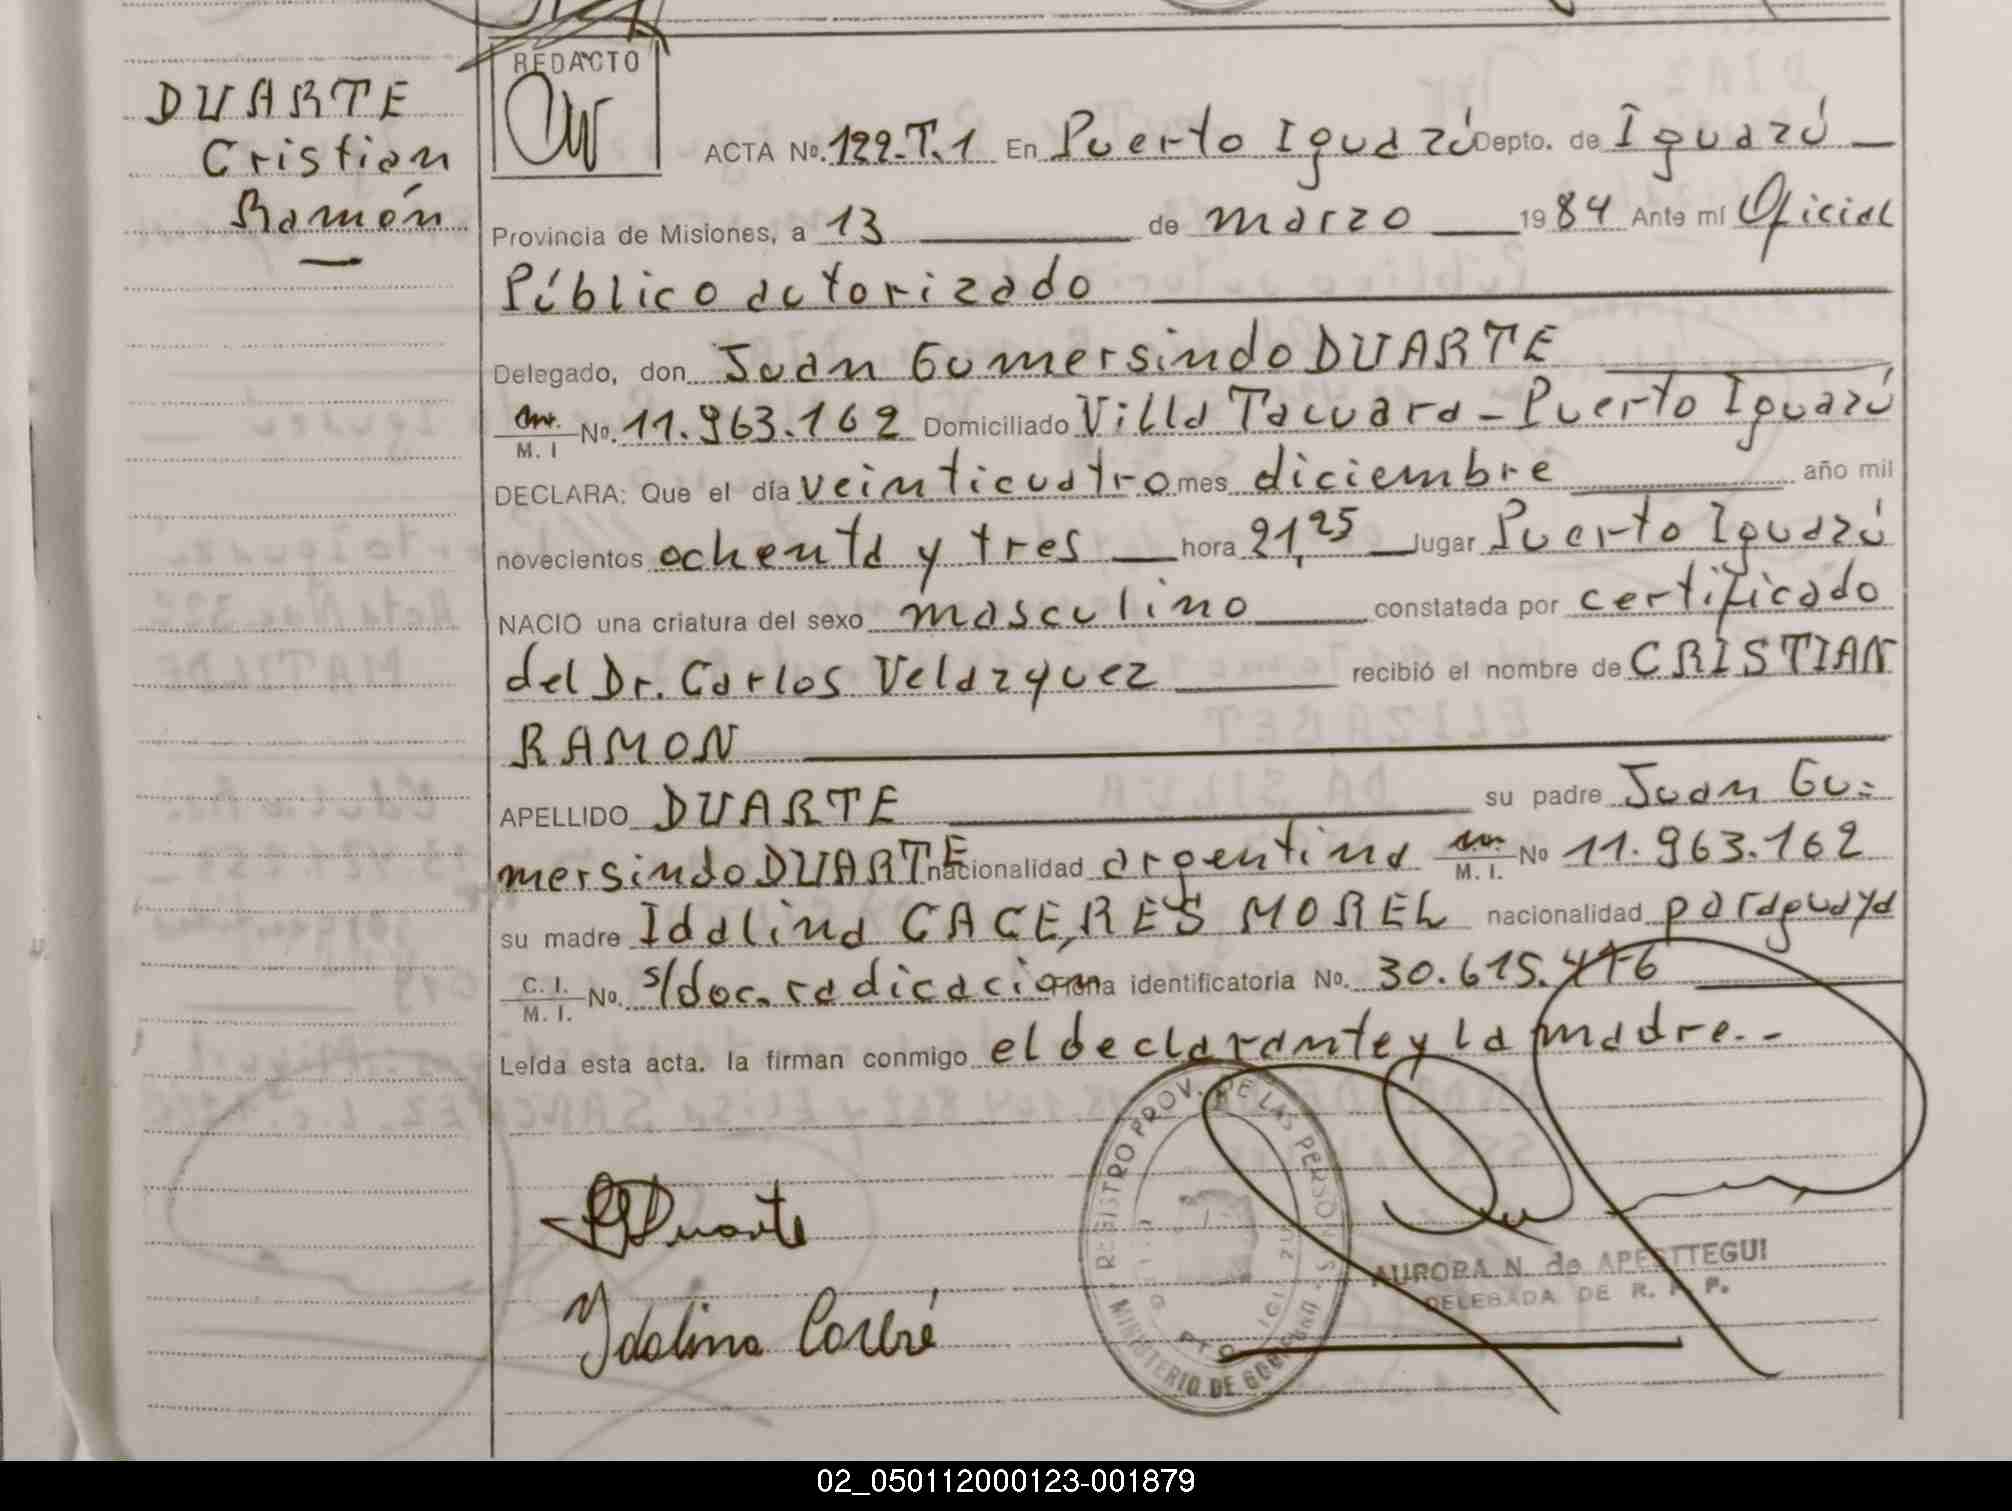 DUARTE
Cristian
Ramón
REDACTO
ACTA No. 122.T.1 En Puerto Iguazú Depto. de Iguazú
Provincia de Misiones, a 13 de marzo 1984 Ante mí Oficial
Público autorizado
Delegado, don Juan Gumersindo DUARTE
M. I No. 11.963.162 Domiciliado Villa Tacuara - Puerto Iguazú
DECLARA: Que el día veinticuatro mes diciembre año mil
novecientos ochenta y tres hora 21,25 lugar Puerto Iguazú
NACIO una criatura del sexo masculino constatada por certificado
del Dr. Carlos Velazquez recibió el nombre de CRISTIAN
RAMON
APELLIDO DUARTE su padre Juan Gu=
mersindo DUARTE nacionalidad argentina M. I. No 11.963.162
su madre Idalina CACERES MOREL nacionalidad paraguaya
C. I. M. I. No. s/doc. radicacion Ficha identificatoria No. 30.615.416
Leída esta acta. la firman conmigo el declarante y la madre.-
REGISTRO PROV. DE LAS PERSONAS
MINISTERIO DE GOBIERNO
Duarte
Ydalina
AURORA N. de APESTTEGUI
DELEGADA DE R. P. P.
02_050112000123-001879